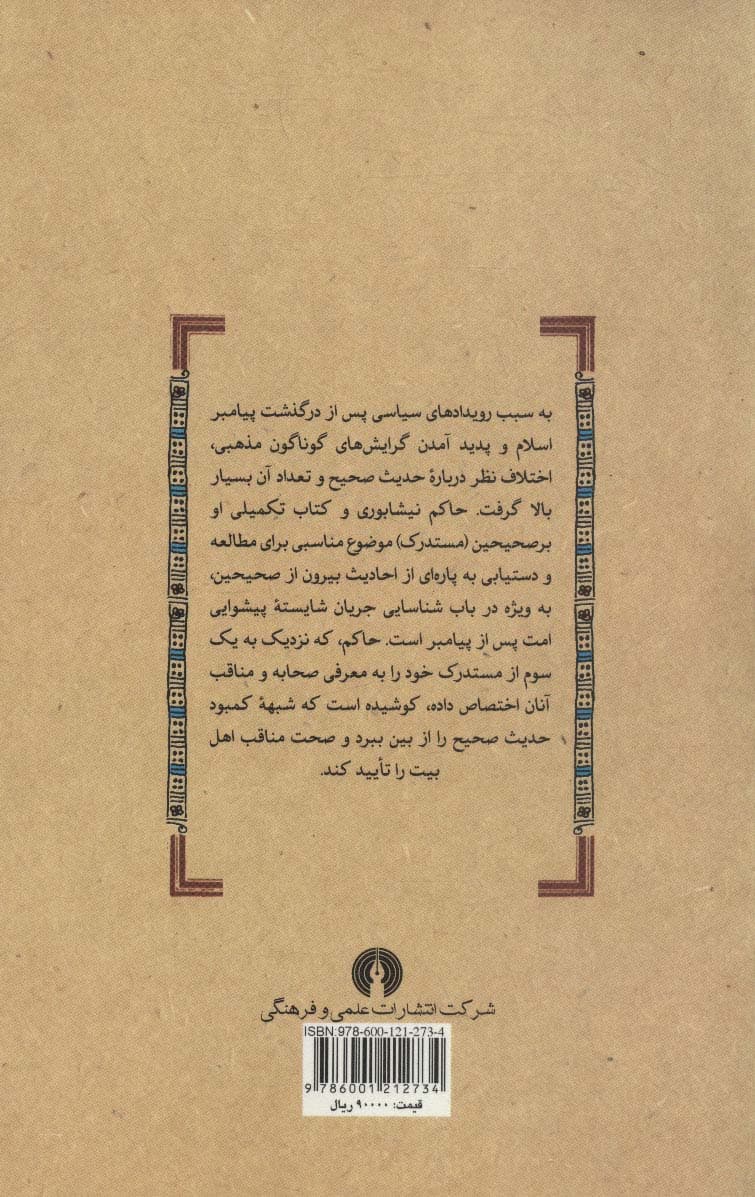 به سبب رویدادهای سیاسی پس از درگذشت پیامبر
اسلام و پدید آمدن گرایش‌های گوناگون مذهبی،
اختلاف نظر دربارهٔ حدیث صحیح و تعداد آن بسیار
بالا گرفت. حاکم نیشابوری و کتاب تکمیلی او
برصحیحین (مستدرک) موضوع مناسبی برای مطالعه
و دستیابی به پاره‌ای از احادیث بیرون از صحیحین،
به ویژه در باب شناسایی جریان شایستهٔ پیشوایی
امت پس از پیامبر است. حاکم، که نزدیک به یک
سوم از مستدرک خود را به معرفی صحابه و مناقب
آنان اختصاص داده، کوشیده است که شبههٔ کمبود
حدیث صحیح را از بین ببرد و صحت مناقب اهل
بیت را تأیید کند.
شرکت انتشارات علمی و فرهنگی
ISBN:978-600-121-273-4
9 786001 212734
قیمت: ۹۰۰۰۰ ریال